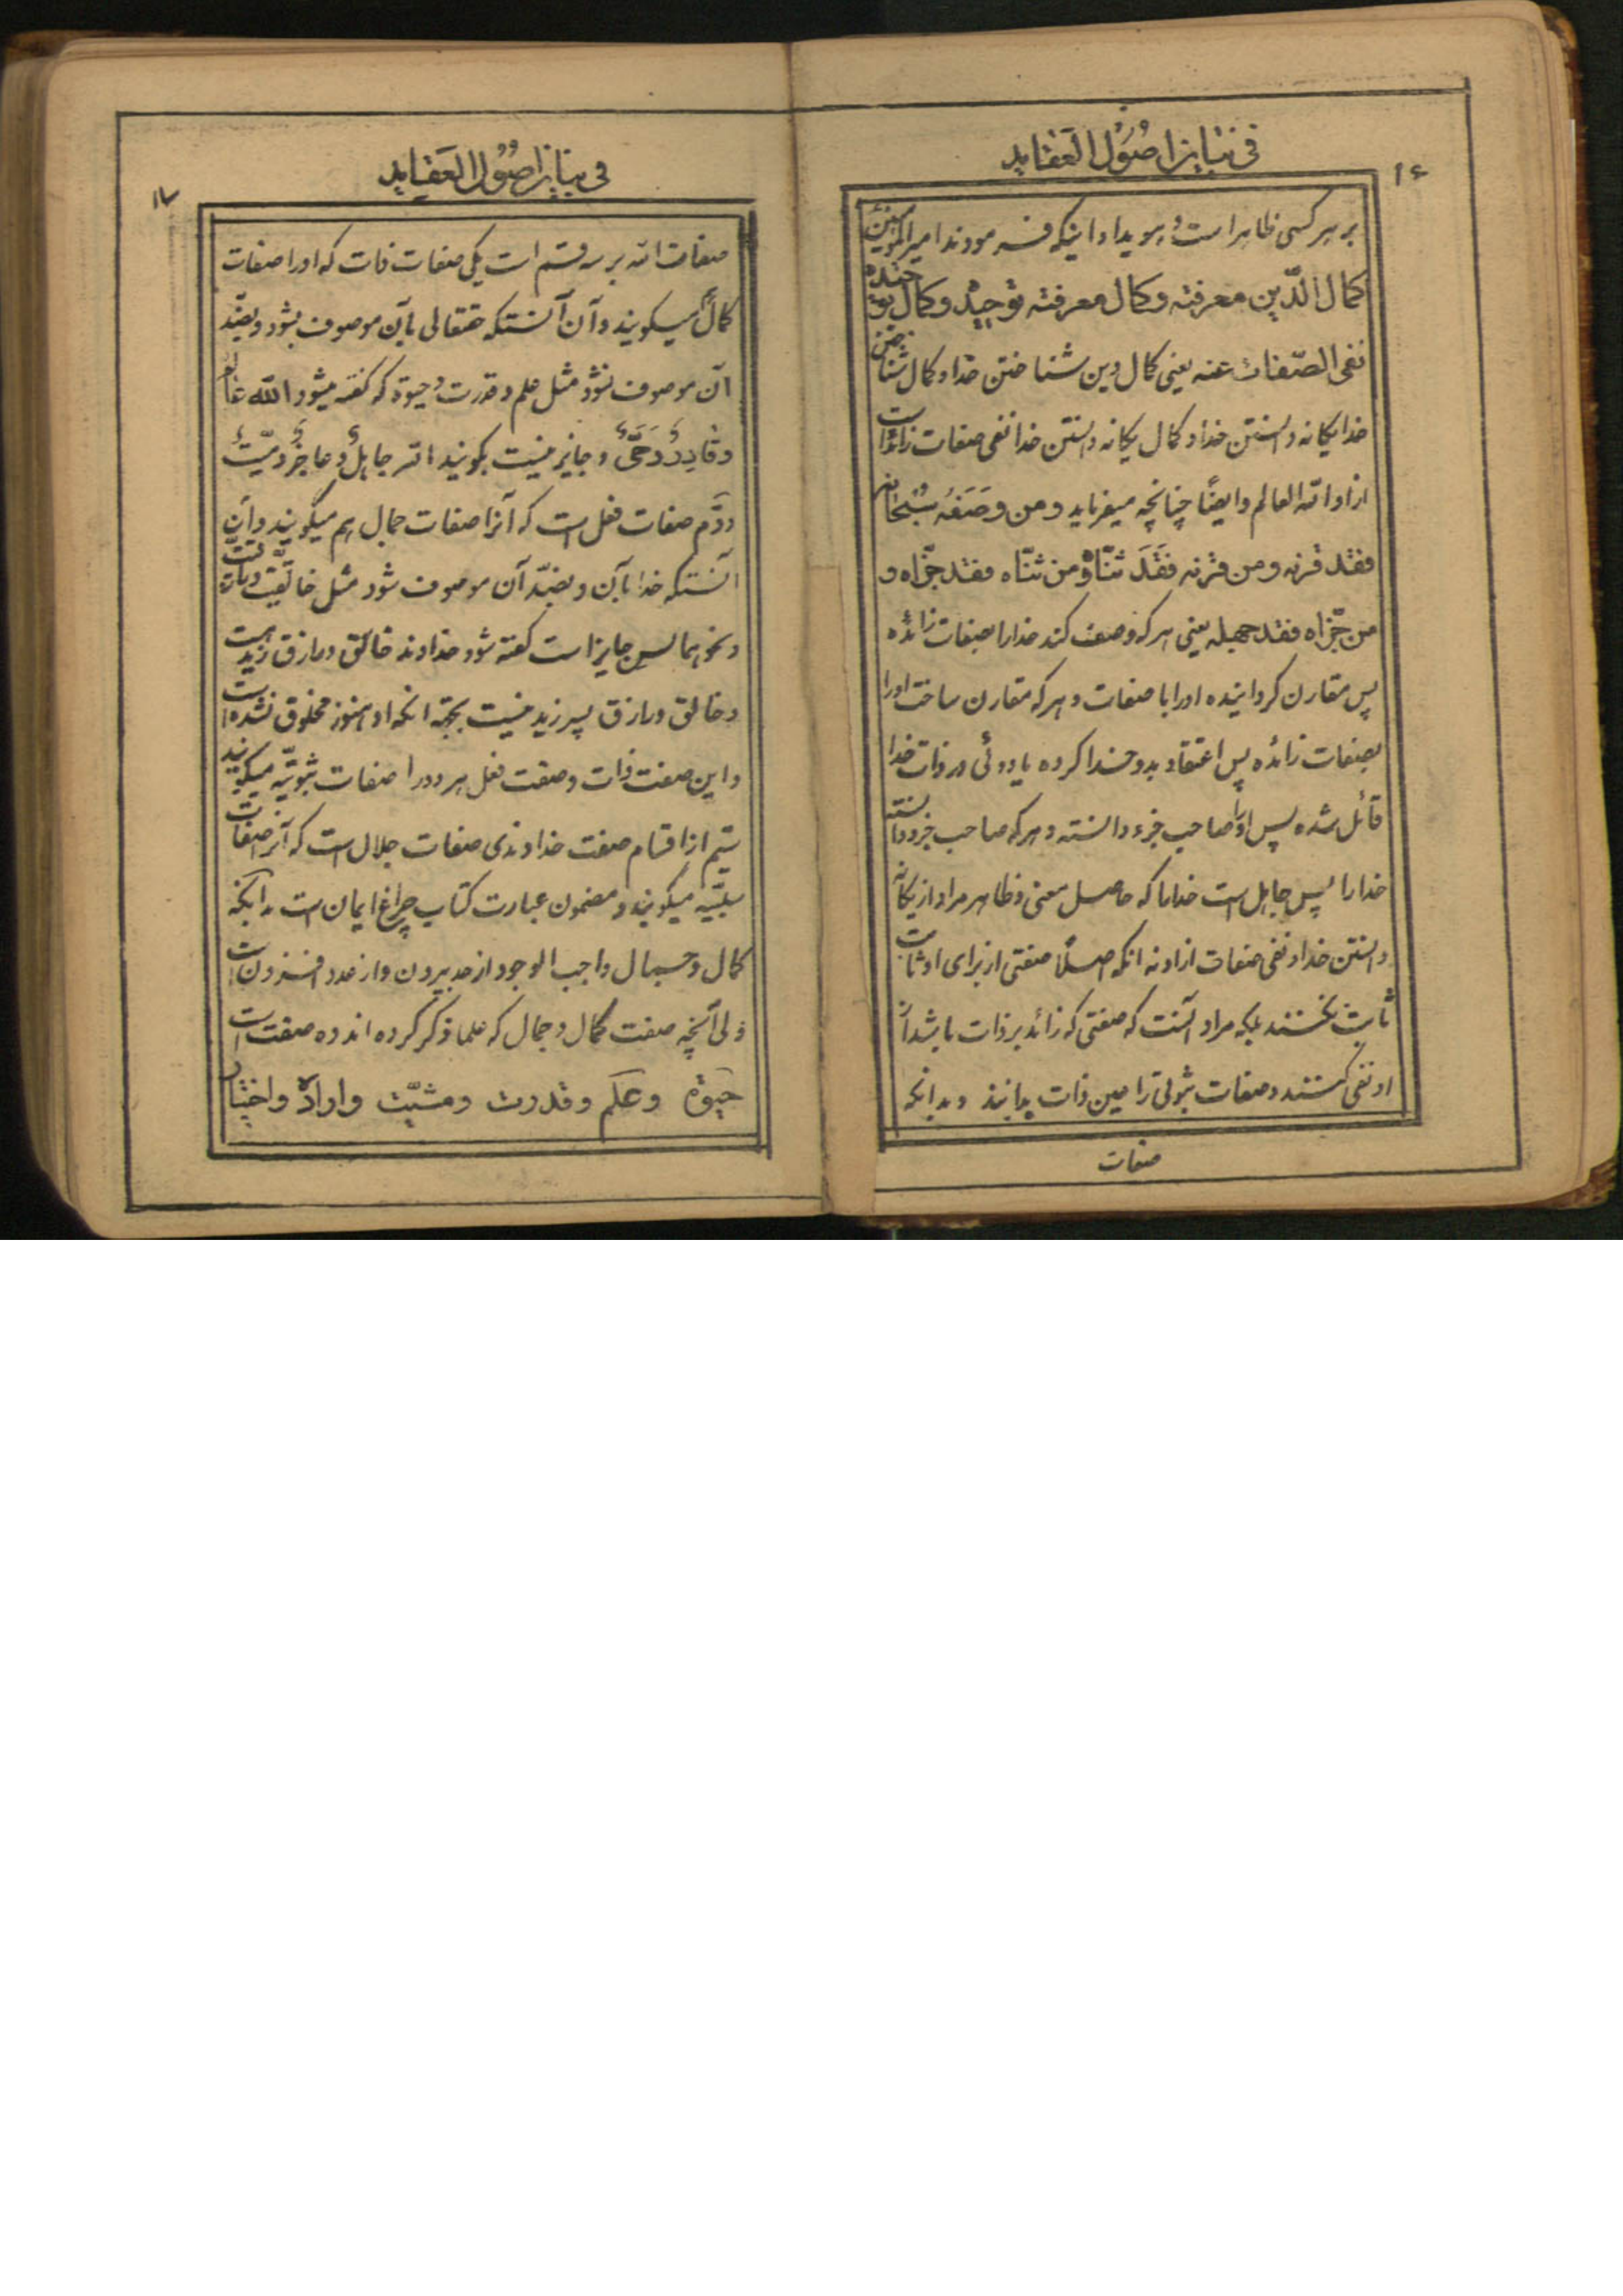 ۱۶
فی بیان اصول العقاید
بر هر کسی ظاهر است و هویدا و اینکه فرمودند امیرالمؤمنین
کمال الدّین معرفته وکمال معرفته توحیده وکمال توحیده
نفی الصّفات عنه یعنی کمال دین شناختن خدا و کمال شناختن
خدا یکانه دانستن خدا و کمال یکانه دانستن خدا نفی صفات زائد است
از او الله العالم وایضًا چنانچه میفرماید ومن وصفه سبحانه
فقد قرنه ومن قرنه فَقَدَ ثنّاه ومن ثنّاه فقد جزّاه و
من جزّاه فقد جهله یعنی هر که وصف کند خدا را بصفات زائده
پس مقارن کردانیده اورا با صفات و هر که مقارن ساخت اورا
بصفات زائده پس اعتقاد بدو خدا کرده یا دوئی در ذات خدا
قائل شده پس اورا صاحب جزء دانسته و هر که صاحب جزء دانسته
خدا را پس جاهل است خدا را که حاصل معنی و ظاهر مراد از یکانه
دانستن خدا و نفی صفات از او نه انکه اصلًا صفتی از برای او ثابت
ثابت نکنند بلکه مراد آنست که صفتی که زائد بر ذات باشد از
او نفی کنند و صفات ثبوتی را عین ذات بدانند و بدانکه
صفات
۱۷
فی بیان اصول العقاید
صفات الله بر سه قسم است یکی صفات ذات که اورا صفات
کمال میکویند و آن آنستکه حقتعالی بآن موصوف بشود و بضدّ
آن موصوف نشود مثل علم و قدرت و حیوة که کفته میشود الله عالم
وقادِرٌ وَحَیٌّ و جایز نیست بکویند الله جاهلٌ و عاجزٌ و میّتٌ
دوّم صفات فعل است که آنرا صفات جمال هم میکویند و آن
آنستکه خدا بآن و بضدّ آن موصوف شود مثل خالقیّت و رازقیّت
و نحو هما پس جایز است کفته شود خداوند خالق و رازق زید است
و خالق و رازق پسر زید نیست بجهة انکه او هنوز مخلوق نشده است
و این صفت ذات و صفت فعل هر دو را صفات ثبوتیّه میکویند
سیّم از اقسام صفت خداوندی صفات جلال است که آنرا صفات
سلبیّه میکویند و مضمون عبارت کتاب چراغ ایمان است بدانکه
کمال و جمال واجب الوجود از حد بیرون و از عدد افزون است
ولی آنچه صفت کمال و جمال که علما ذکر کرده اند ده صفت است
حیوة وعلم وقدرت ومشیّت واراده واختیار